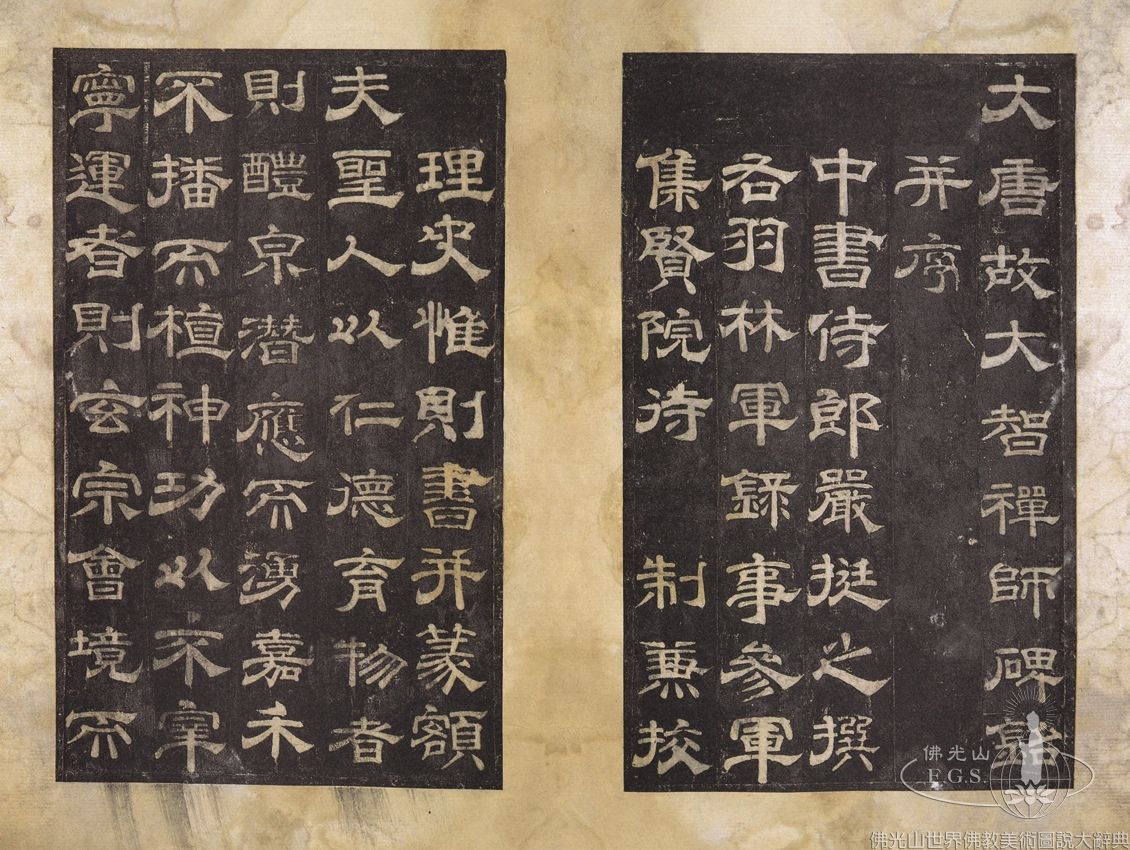 大唐故大智禪師碑
并序
中書侍郎嚴挺之撰
右羽林軍錄事參軍
集賢院待 制兼校
理史惟則書并篆額
夫聖人以仁德育物者
則醴泉潛應而湧嘉禾
不播而植神功以不宰
寧運者則玄宗會境而
佛光山
F.G.S.
佛光山世界佛教美術圖說大辭典